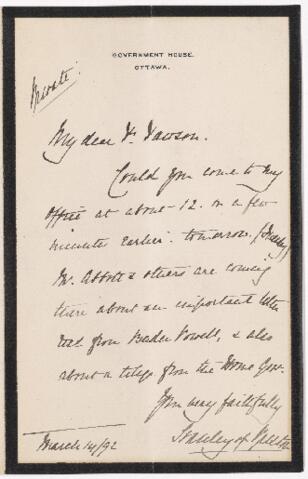 GOVERNMENT HOUSE.
OTTAWA.
Private.
My dear Dr. Dawson.
Could you come to my
office at about 12. or a few
minutes earlier. tomorrow. (Tuesday)
Mr. Abbott & others are coming
there about an important letter
recd. from Baden Powell, & also
about a telegr from the Home Govt.
Yours very faithfully
Stanley of Preston
March 14/92